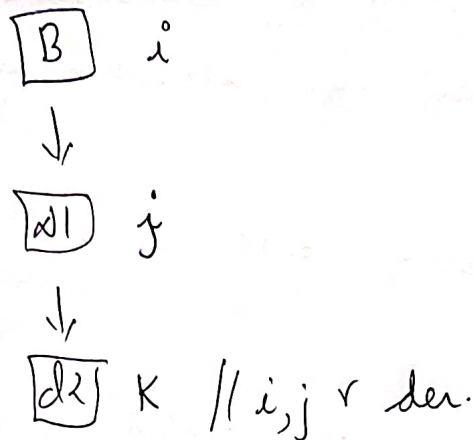 B i
d1 j
d2 K // i, j r der.